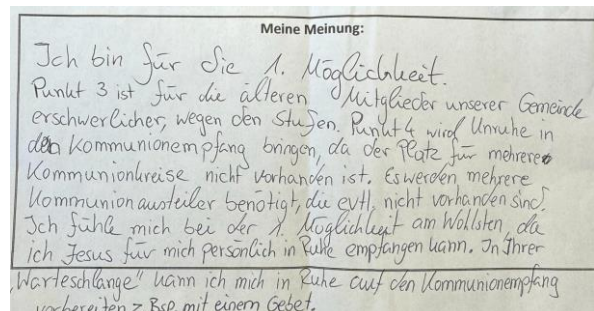 Meine Meinung:
Ich bin für die 1. Möglichkeit.
Punkt 3 ist für die älteren Mitglieder unserer Gemeinde
erschwerlicher, wegen den Stufen. Punkt 4 wird Unruhe in
den Kommunionempfang bringen, da der Platz für mehrere
Kommunionkreise nicht vorhanden ist. Es werden mehrere
Kommunionausteiler benötigt, die evtl. nicht vorhanden sind.
Ich fühle mich bei der 1. Möglichkeit am Wollsten, da
ich Jesus für mich persönlich in Ruhe empfangen kann. In Ihrer
„Warteschlange" kann ich mich in Ruhe auf den Kommunionempfang
vorbereiten > Bsp. mit einem Gebet.